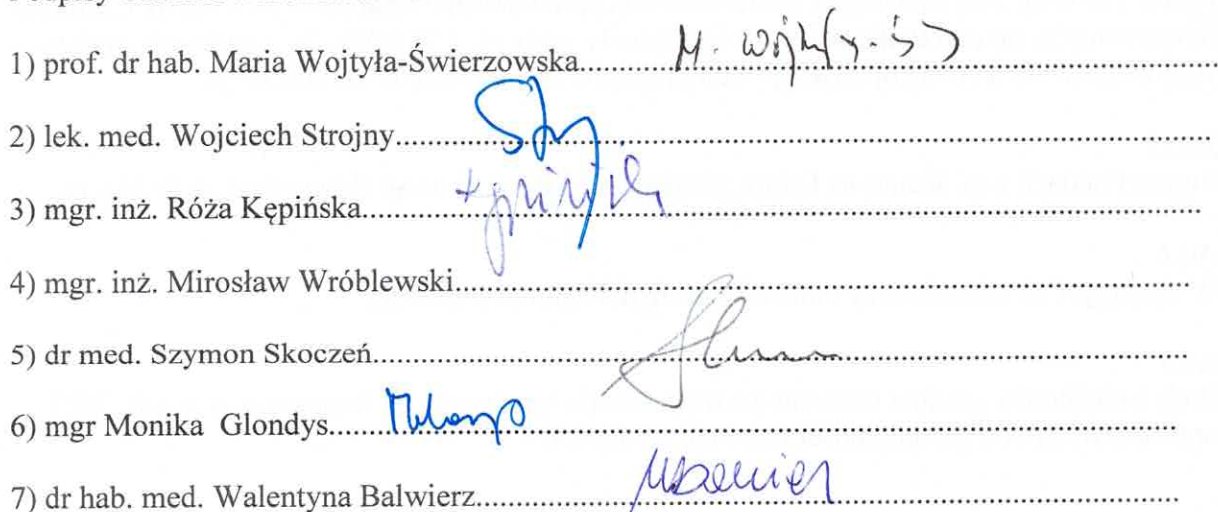 1) prof. dr hab. Maria Wojtyła-Świerzowska..........
2) lek. med. Wojciech Strojny..........
3) mgr. inż. Róża Kępińska..........
4) mgr. inż. Mirosław Wróblewski..........
5) dr med. Szymon Skoczeń..........
6) mgr Monika Glondys..........
7) dr hab. med. Walentyna Balwierz..........